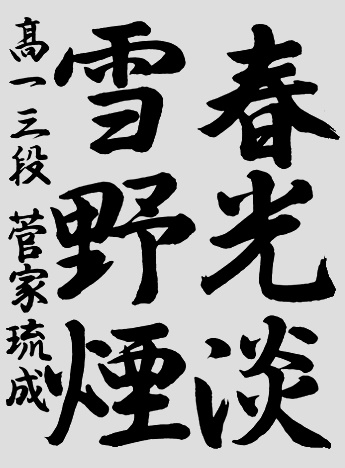 春光淡
雪野煙
高一三段 菅家琉成